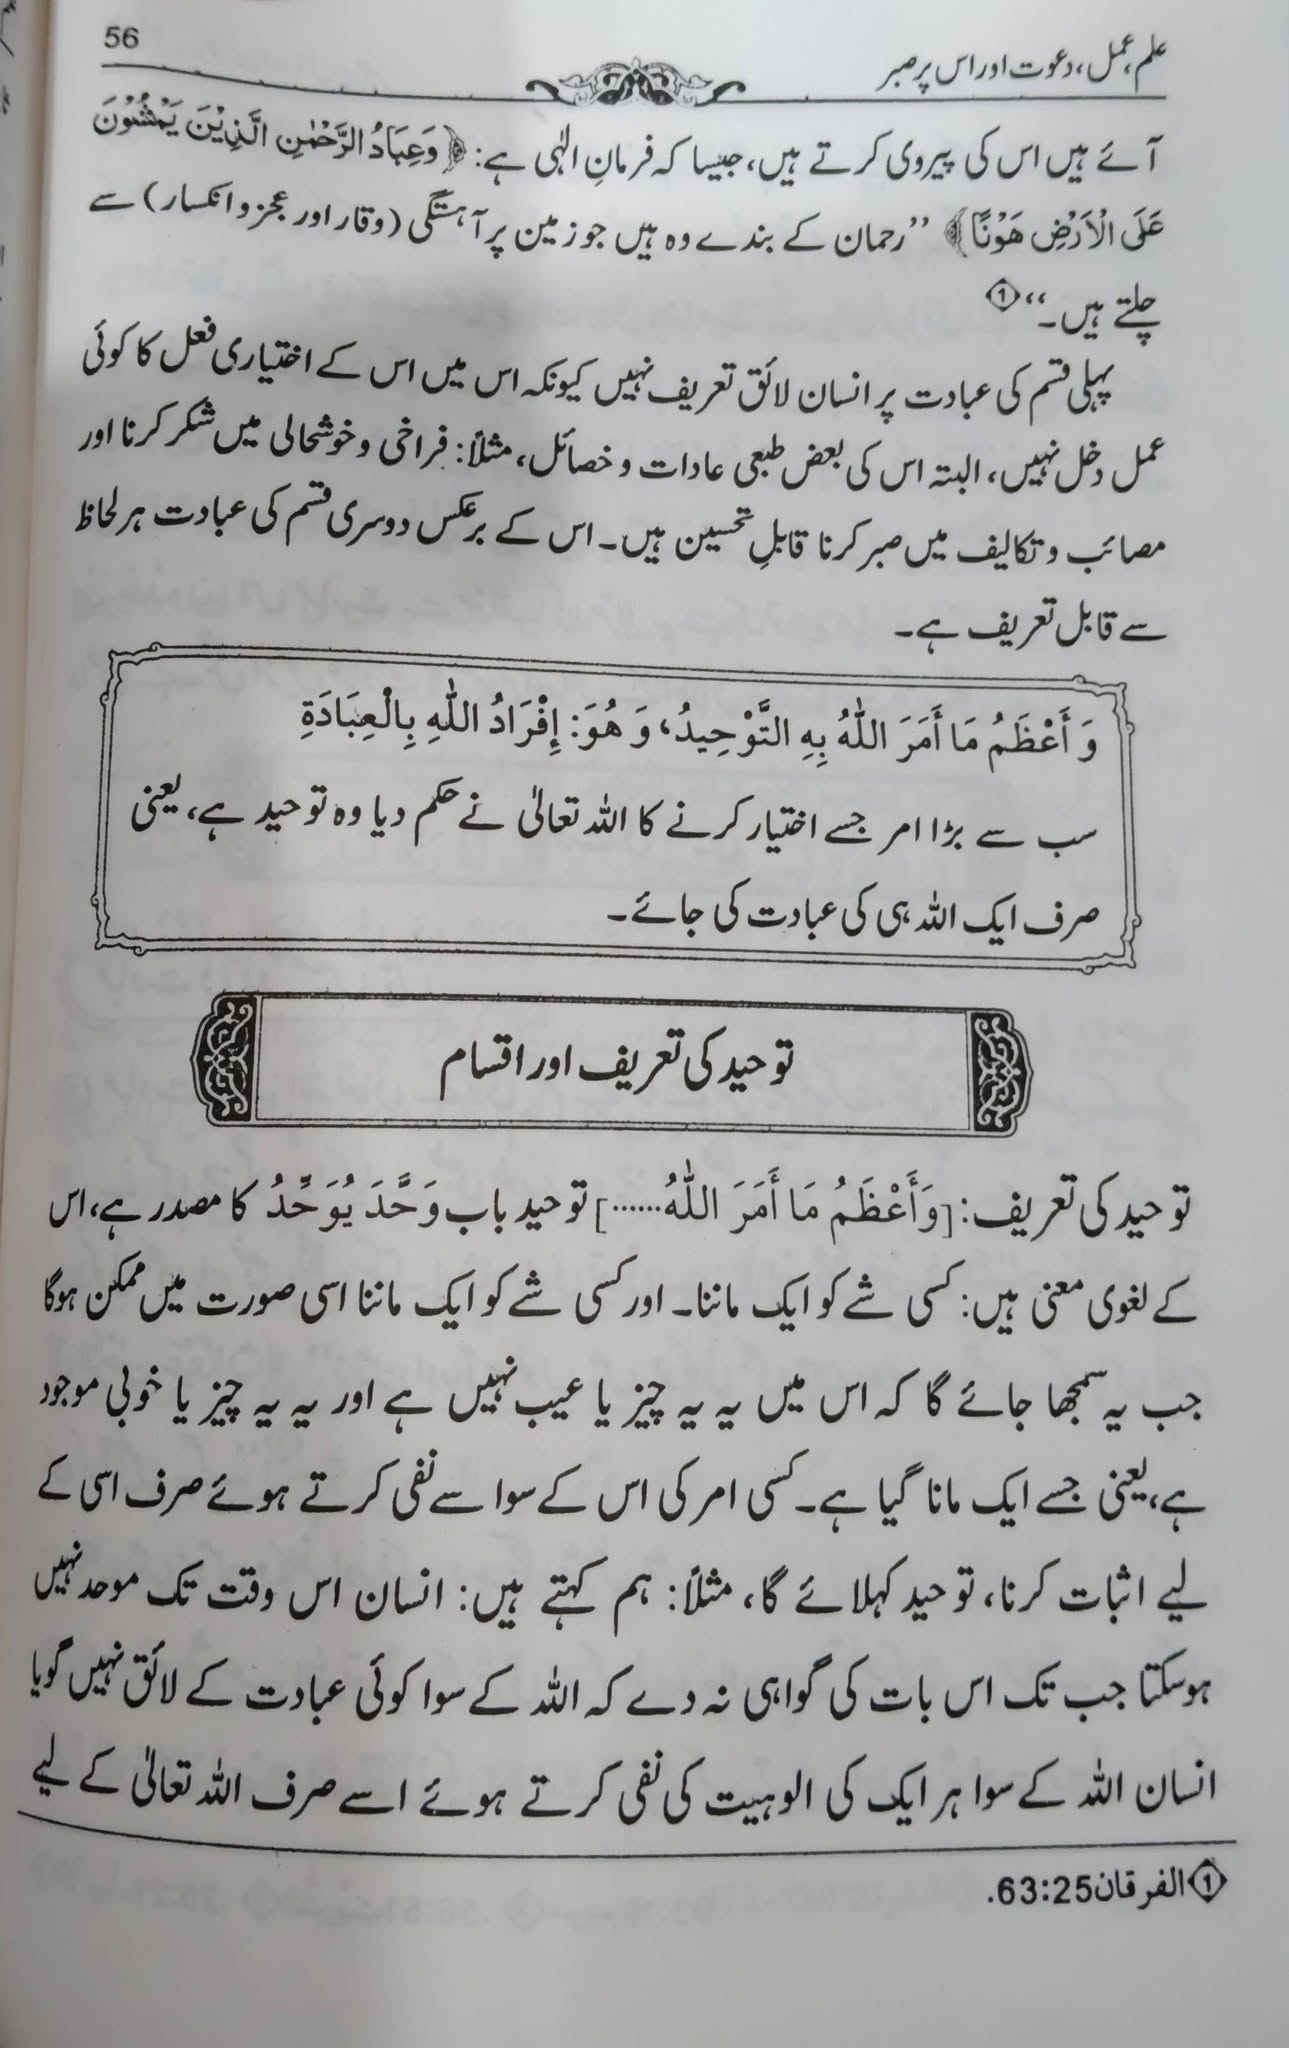 علم، عمل، دعوت اور اس پر صبر
56
آئے ہیں اس کی پیروی کرتے ہیں، جیسا کہ فرمانِ الٰہی ہے: ﴿وَعِبَادُ الرَّحْمٰنِ الَّذِيْنَ يَمْشُوْنَ
عَلَى الْاَرْضِ هَوْنًا﴾ ’’رحمان کے بندے وہ ہیں جو زمین پر آہستگی (وقار اور عجز و انکسار) سے
چلتے ہیں۔‘‘ ①
پہلی قسم کی عبادت پر انسان لائق تعریف نہیں کیونکہ اس میں اس کے اختیاری فعل کا کوئی
عمل دخل نہیں، البتہ اس کی بعض طبعی عادات و خصائل، مثلاً: فراخی و خوشحالی میں شکر کرنا اور
مصائب و تکالیف میں صبر کرنا قابلِ تحسین ہیں۔ اس کے برعکس دوسری قسم کی عبادت ہر لحاظ
سے قابل تعریف ہے۔
وَ أَعْظَمُ مَا أَمَرَ اللّٰهُ بِهِ التَّوْحِيدُ، وَ هُوَ: إِفْرَادُ اللّٰهِ بِالْعِبَادَةِ
سب سے بڑا امر جسے اختیار کرنے کا اللہ تعالیٰ نے حکم دیا وہ توحید ہے، یعنی
صرف ایک اللہ ہی کی عبادت کی جائے۔
توحید کی تعریف اور اقسام
توحید کی تعریف: [وَأَعْظَمُ مَا أَمَرَ اللّٰهُ......] توحید باب وَحَّدَ يُوَحِّدُ کا مصدر ہے، اس
کے لغوی معنی ہیں: کسی شے کو ایک ماننا۔ اور کسی شے کو ایک ماننا اسی صورت میں ممکن ہوگا
جب یہ سمجھا جائے گا کہ اس میں یہ یہ چیز یا عیب نہیں ہے اور یہ یہ چیز یا خوبی موجود
ہے، یعنی جسے ایک مانا گیا ہے۔ کسی امر کی اس کے سوا سے نفی کرتے ہوئے صرف اسی کے
لیے اثبات کرنا، توحید کہلائے گا، مثلاً: ہم کہتے ہیں: انسان اس وقت تک موحد نہیں
ہوسکتا جب تک اس بات کی گواہی نہ دے کہ اللہ کے سوا کوئی عبادت کے لائق نہیں گویا
انسان اللہ کے سوا ہر ایک کی الوہیت کی نفی کرتے ہوئے اسے صرف اللہ تعالیٰ کے لیے
① الفرقان 63:25.